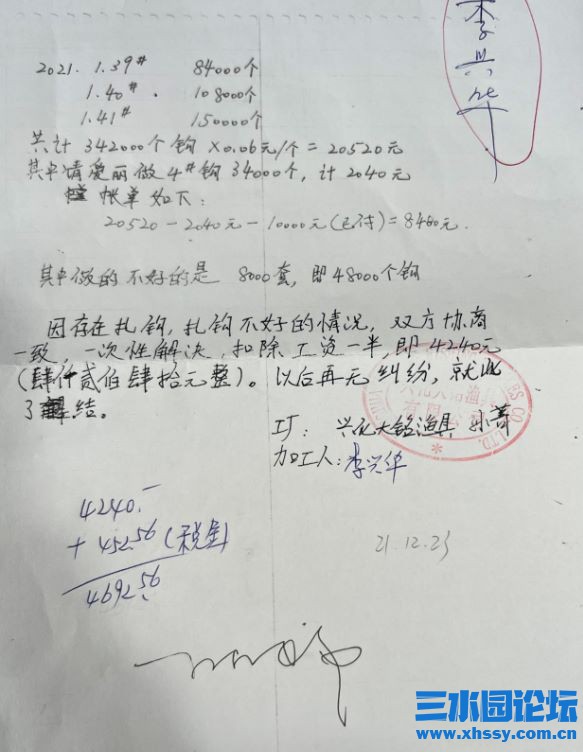 李兴华
2021. 1.39# 84000个
1.40# 108000个
1.41# 150000个
共计 342000个钩 ×0.06元/个 = 20520元
其中请爱丽做4#钩34000个,计2040元
帐单如下:
20520-2040元-10000元(已付)=8480元.
其中做的不好的是 8000套,即48000个钩
因存在扎钩,扎钩不好的情况,双方协商
一致,一次性解决,扣除工资一半,即4240元
(肆仟贰佰肆拾元整)。以后再无纠纷,就此
了结。
工厂:兴化大铭渔具
加工人:李兴华
4240.-
+ 452.56(税金)
4692.56
21.12.23
三水园论坛
www.xhssy.com.cn